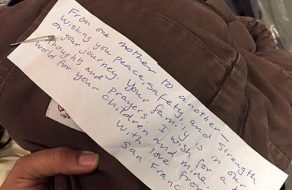 From one mother to another-
Wishing you peace, safety, and strength
on your journey. Your family is in our
thoughts and prayers. I wish for a
world for your children and mine.
With love from
San Franc